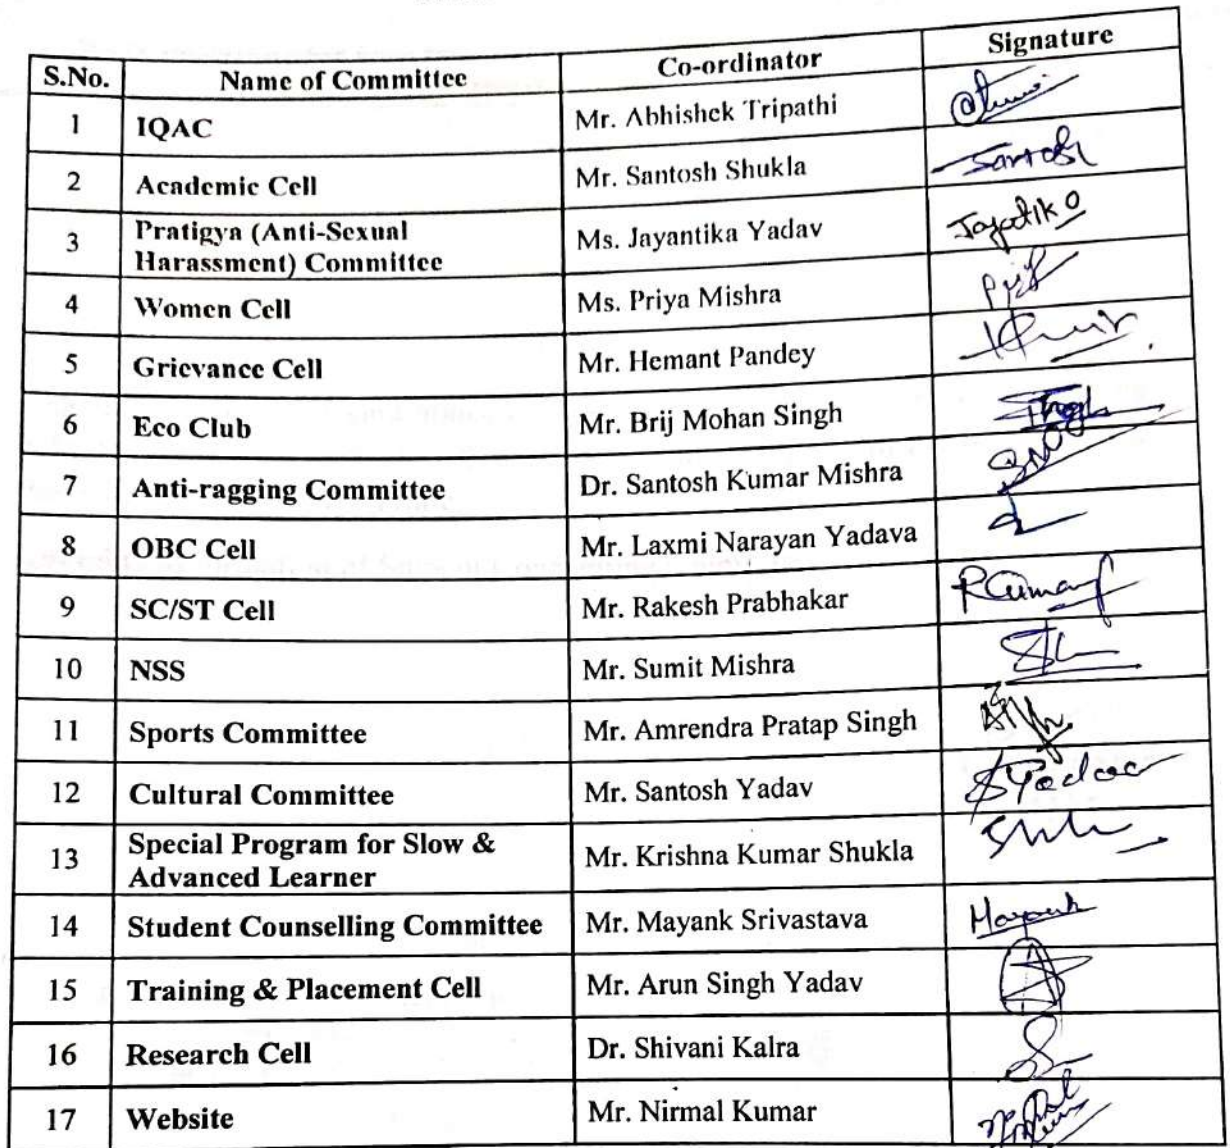 S.No. Name of Committee Co-ordinator Signature
1 IQAC Mr. Abhishek Tripathi
2 Academic Cell Mr. Santosh Shukla Santosh
3 Pratigya (Anti-Sexual
Harassment) Committee Ms. Jayantika Yadav
4 Women Cell Ms. Priya Mishra
5 Grievance Cell Mr. Hemant Pandey
6 Eco Club Mr. Brij Mohan Singh
7 Anti-ragging Committee Dr. Santosh Kumar Mishra
8 OBC Cell Mr. Laxmi Narayan Yadava
9 SC/ST Cell Mr. Rakesh Prabhakar RKumar
10 NSS Mr. Sumit Mishra
11 Sports Committee Mr. Amrendra Pratap Singh
12 Cultural Committee Mr. Santosh Yadav SYadav
13 Special Program for Slow &
Advanced Learner Mr. Krishna Kumar Shukla
14 Student Counselling Committee Mr. Mayank Srivastava Mayank
15 Training & Placement Cell Mr. Arun Singh Yadav
16 Research Cell Dr. Shivani Kalra
17 Website Mr. Nirmal Kumar